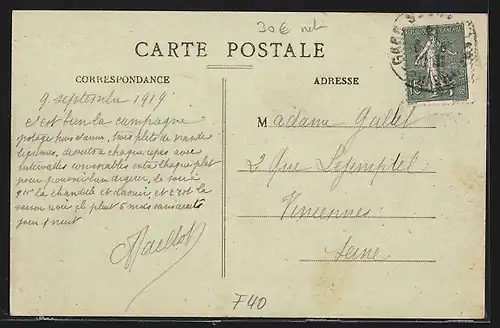 30€ net
CARTE POSTALE
CORRESPONDANCE
ADRESSE
9 septembre 1919
c'est bien la campagne
potage hors d'œuvre, trois plats de viande
légumes, desserts à chaque repas avec
intervalles convenables entre chaque plat
pour pouvoir bien digérer, le soir à
9h la chandelle et dormir, et c'est la
saison il pleut 6 mois sans arrêt
jour & nuit
Madame Gallet
2 Rue Lejemptel
Vincennes
Seine
F40